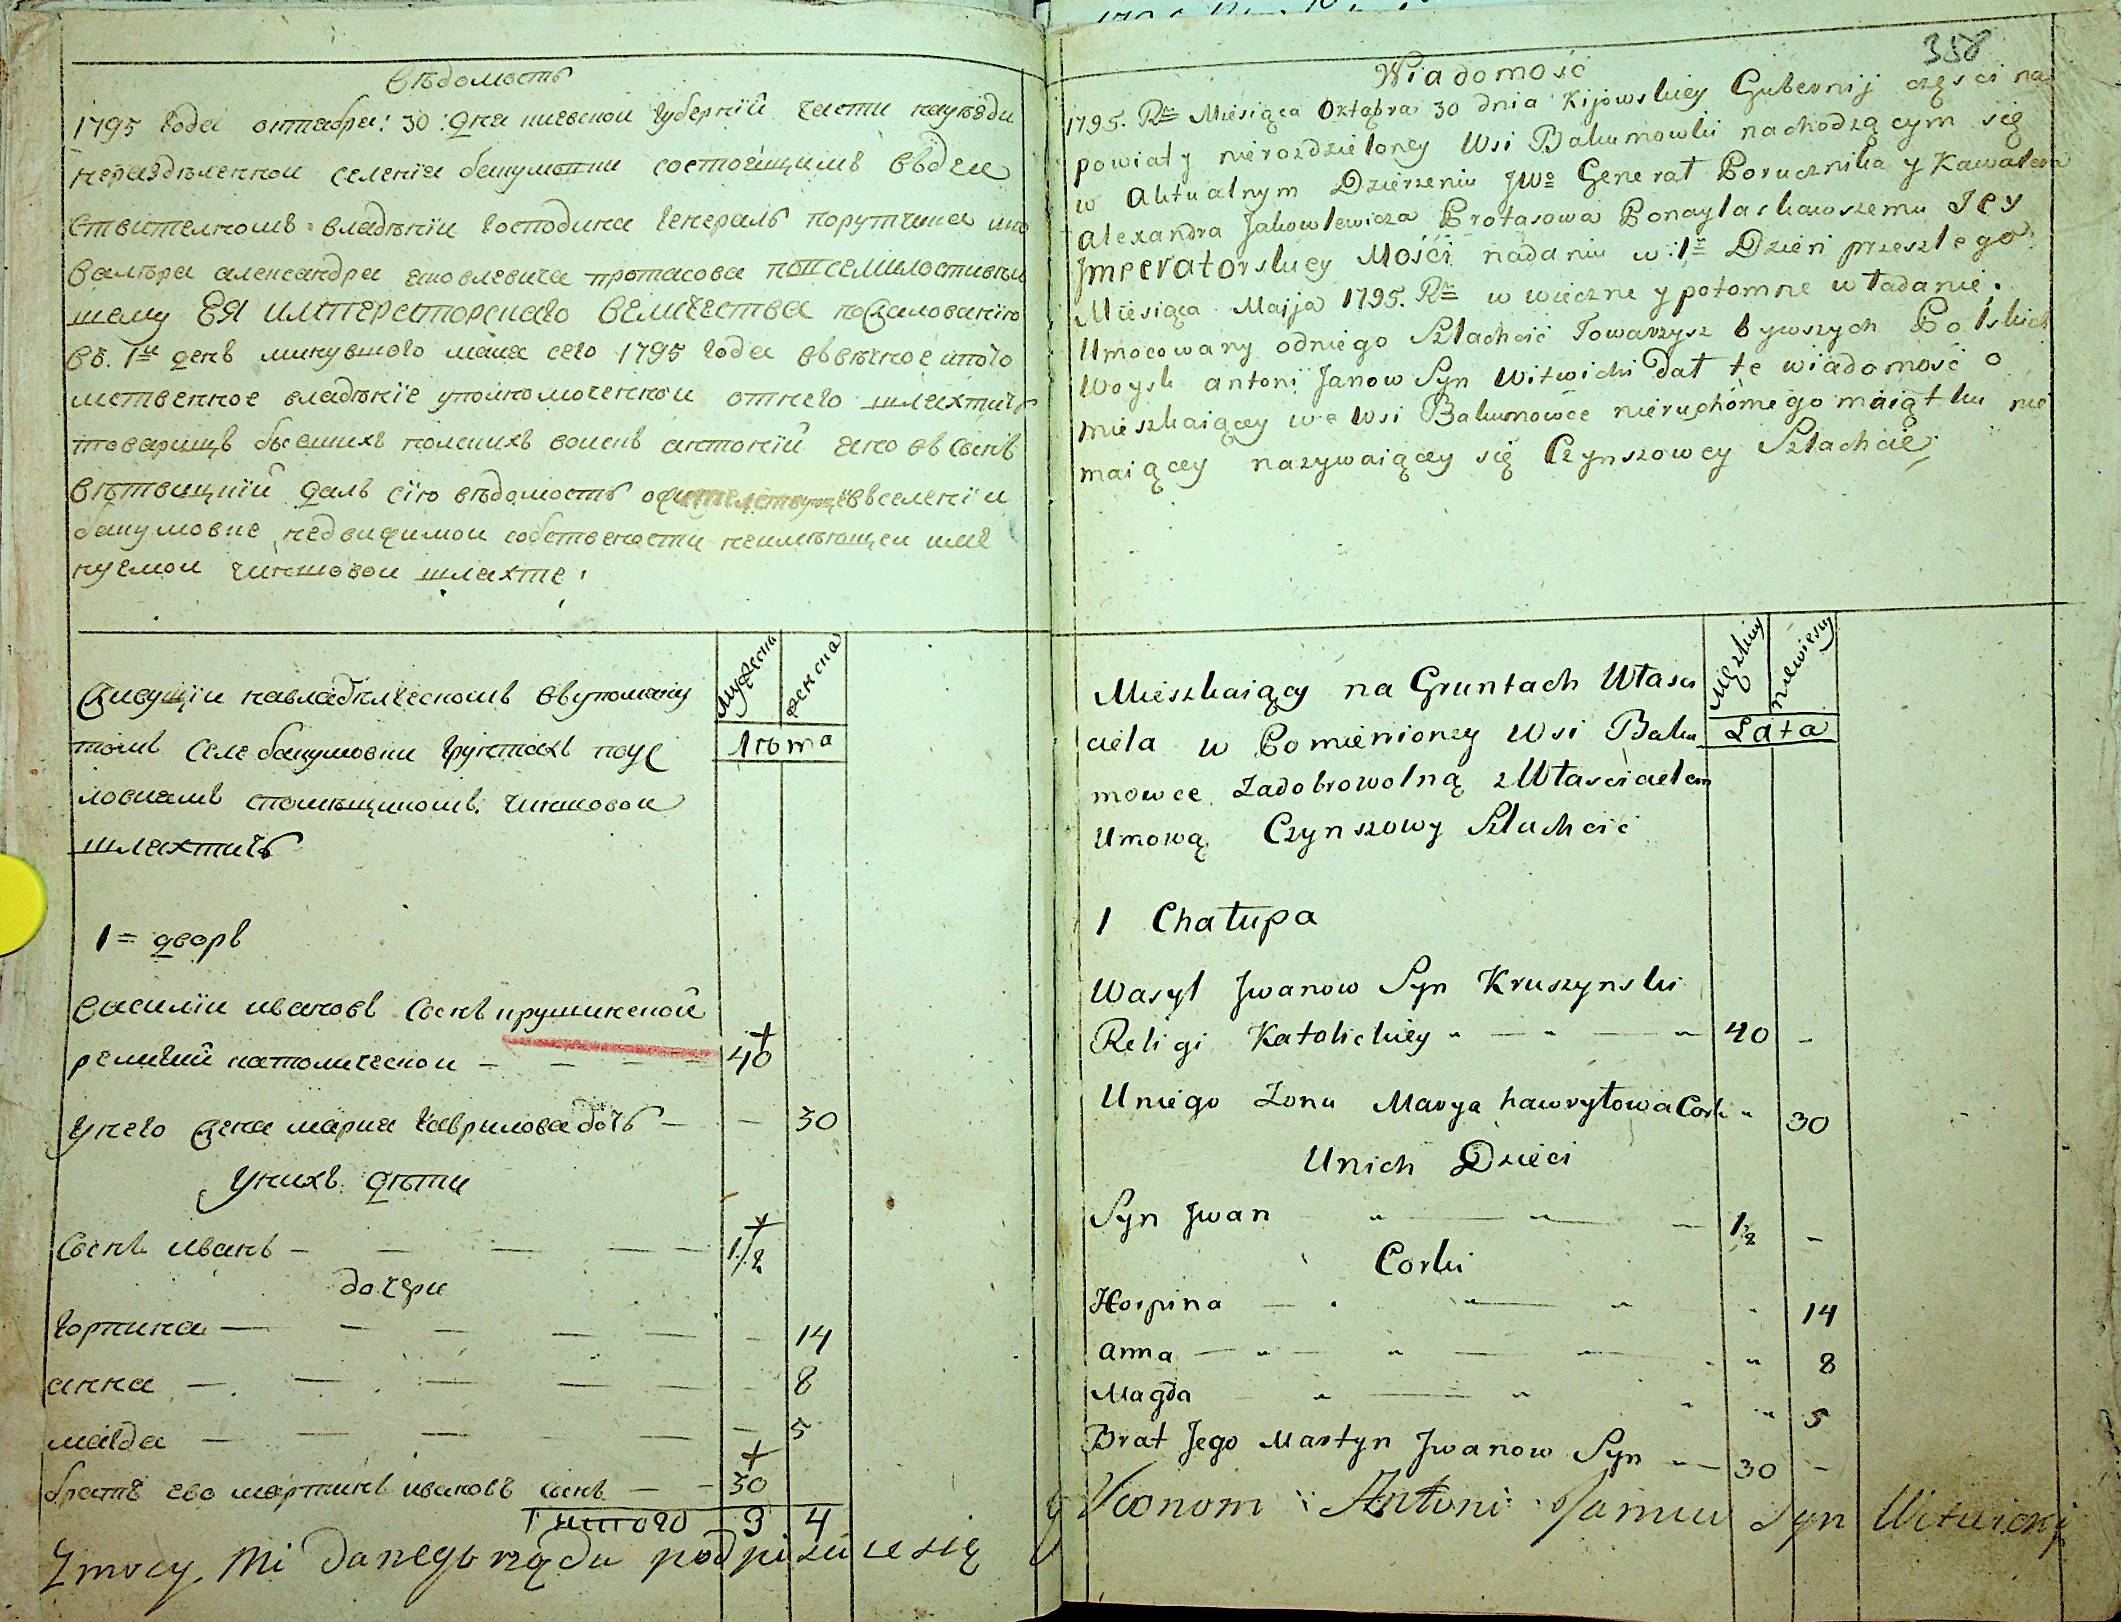 Вѣдомость
1795 года октабра: 30: дня киевской губернїи части науѣзди
нераздѣленной селенїя бакумовки состоящимъ въдеи
ствителномъ владѣнїи господина генералъ порутчика и ка
валѣра александра яковлевича протасова
шему ЕЯ императорскаго величества пожалованїю
въ. 1е день минувшого маия сего 1795 года въвѣчное ипото
мственное владѣнїе уполномоченнои отнего шляхтичъ
товарищъ бывшихъ полскихъ воискъ антонїй яновъ сынъ
витвицкїй далъ сїю вѣдомость вселенїи
бакумовке недвижимои собствености неимѣющеи име
нуемои чиншовои шляхте
Живущїи навладѣлческомъ въупомяну
томъ селе бакумовки грунтахъ поус
ловиямъ спомѣщикомъ. чиншовои
шляхтичъ
мужеска
женска
лѣта
1 = дворъ
василїи ивановъ сынъ крушинской
религїи католической — — — — 40
унего жена мариа гаврилова дочь — — 30
Унихъ дѣти
Сынъ иванъ — — — — — 1/2
дочери
горпина — — — — — — 14
анна — — — — — — 8
магда — — — — — — 5
братъ ево мартинъ ивановъ сынъ — — 30
итого 3 4
Z mocy Mi danego rządu podpisuie się
358
Wiadomość
1795. Rku Miesiąca Oktąbra 30 dnia Kijowskiey Gubernij częsci na
powiaty nierozdzieloney Wsi Bakumowki nachodzącym się
w aktualnym Dzierzeniu JWo Generał Porucznika y Kawalera
alexandra Jakowlewicza Protasowa Ponaylaskawszemu Jey
Jmperatorskiey Mości nadaniu w 1m Dzień przeszłego
Miesiąca Majja 1795. Rku w wieczne y potomne władanie.
Umocowany odniego Szlachcić Towarzysz bywszych Polskich
Woysk antoni Janow Syn Witwicki dał tę wiadomość o
mieszkaiącey we Wsi Bakumowce nieruchomego maiątku nie
maiącey nazywaiącey się Czynszowey Szlachcie
Mieszkaiący na Gruntach Własci
ciela w Pomienioney Wsi Baku
mowce Zadobrowolną z Właścicielem
Umową Czynszowy Szlachcić
Męzkiey
niewiesny
Lata
1 Chałupa
Wasyl Jwanow Syn Kruszynski
Religi Katolickiey " — " — " 40 –
Uniego Zona Marya hawryłowa Cork " 30
Unich Dzieci
Syn Jwan " — " — 1/2 –
Corki
Horpina — " — " 14
Anna — " — " — " 8
Magda " — " " " 5
Brat Jego Martyn Jwanow Syn " — 30 –
y Vkonom Antoni Janow Syn Witwicky